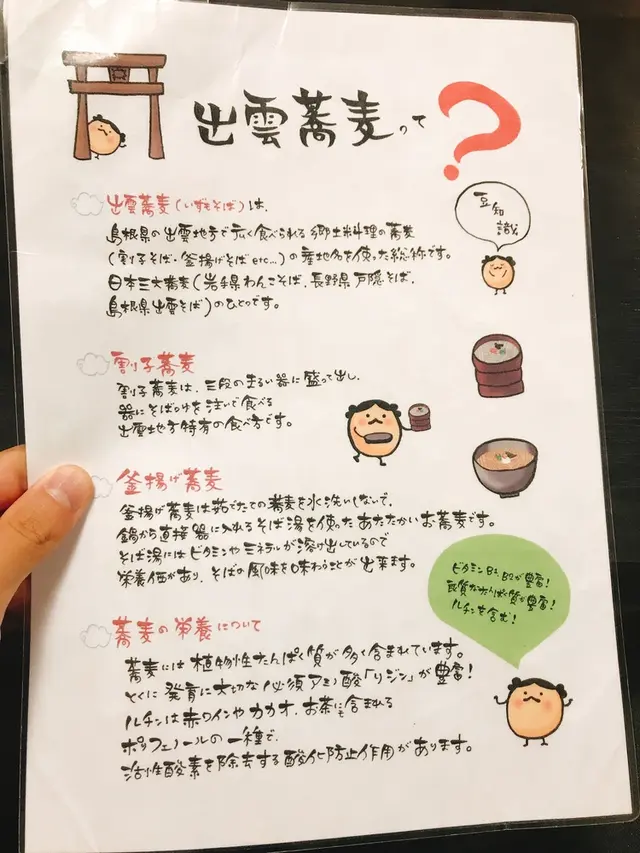 出雲蕎麦って?
豆知
識
出雲蕎麦(いずもそば)は、
島根県の出雲地方で広く食べられる郷土料理の蕎麦
(割子そば・釜揚げそばetc...)の産地名を使った総称です。
日本三大蕎麦(岩手県わんこそば、長野県戸隠そば、
島根県出雲そば)のひとつです。
割子蕎麦
割子蕎麦は、三段のまるい器に盛って出し、
器にそばつゆを注いで食べる
出雲地方特有の食べ方です。
釜揚げ蕎麦
釜揚げ蕎麦は茹でたての蕎麦を水洗いしないで、
鍋から直接器に入れるそば湯を使ったあたたかいお蕎麦です。
そば湯にはビタミンやミネラルが溶け出しているので
栄養価があり、そばの風味を味わうことが出来ます。
ビタミンB1、B2が豊富!
良質なたんぱく質が豊富!
ルチンを含む!
蕎麦の栄養について
蕎麦には植物性たんぱく質が多く含まれています。
とくに発育に大切な(必須アミノ酸「リジン」が豊富!
ルチンは赤ワインやカカオ、お茶にも含まれる
ポリフェノールの一種で、
活性酸素を除去する酸化防止作用があります。